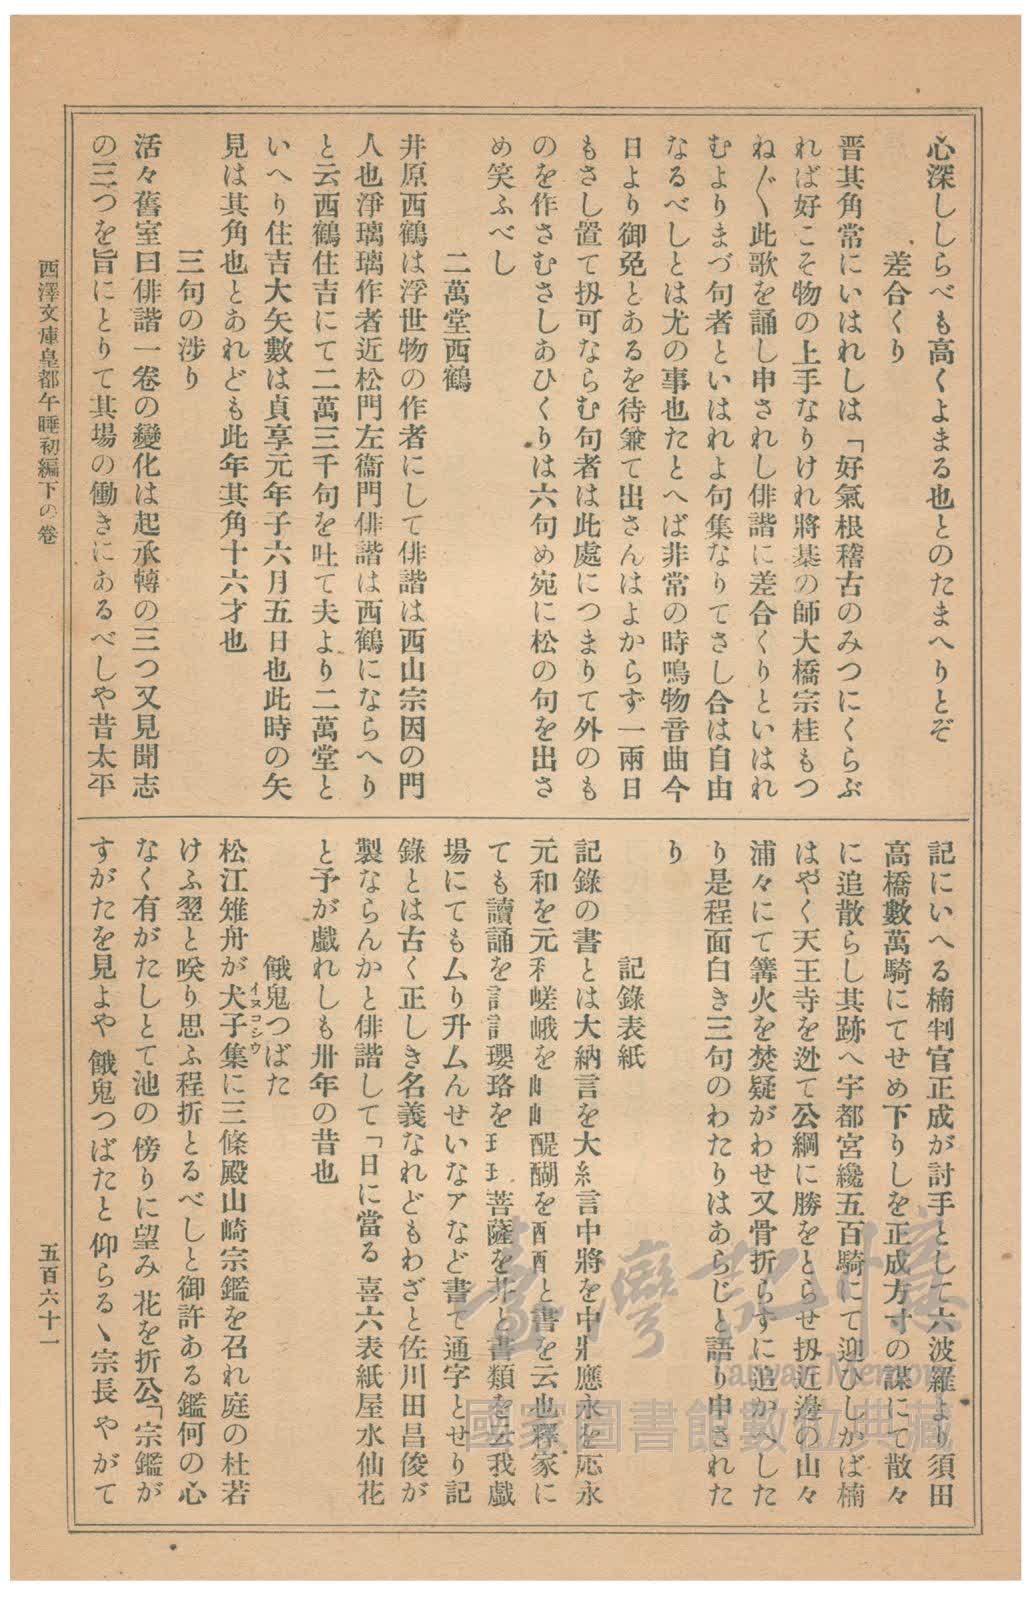 心深ししらべも高くよまる也とのたまへりとぞ
差合くり
晋其角常にいはれしは「好氣根稽古のみつにくらぶ
れば好こそ物の上手なりけれ將棊の師大橋宗桂もつ
ね〴〵此歌を誦し申されし俳諧に差合くりといはれ
むよりまづ句者といはれよ句集なりてさし合は自由
なるべしとは尤の事也たとへば非常の時鳴物音曲今
日より御免とあるを待兼て出さんはよからず一兩日
もさし置て扨可ならむ句者は此處につまりて外のも
のを作さむさしあひくりは六句め宛に松の句を出さ
め笑ふべし
二萬堂西鶴
井原西鶴は浮世物の作者にして俳諧は西山宗因の門
人也淨璃璃作者近松門左衞門俳諧は西鶴にならへり
と云西鶴住吉にて二萬三千句を吐て夫より二萬堂と
いへり住吉大矢數は貞享元年子六月五日也此時の矢
見は其角也とあれども此年其角十六才也
三句の渉り
活々舊室曰俳諧一卷の變化は起承轉の三つ又見聞志
の三つを旨にとりて其場の働きにあるべしや昔太平
記にいへる楠判官正成が討手として六波羅より須田
高橋數萬騎にてせめ下りしを正成方寸の謀にて散々
に追散らし其跡へ宇都宮纔五百騎にて迎ひしかば楠
はやく天王寺を迯て公綱に勝をとらせ扨近邊の山々
浦々にて篝火を焚疑がわせ又骨折らずに追かへした
り是程面白き三句のわたりはあらじと語り申された
り
記錄表紙
記錄の書とは大納言を大糹言中將を中丬應永を応永
元和を元禾嵯峨を山山醍醐を酉酉と書を云也釋家に
ても讀誦を言言瓔珞を王王菩薩を艹と書類を云我戲
場にてもムり升ムんせいなアなど書て通字とせり記
錄とは古く正しき名義なれどもわざと佐川田昌俊が
製ならんかと俳諧して「日に當る喜六表紙屋水仙花
と予が戲れしも卅年の昔也
餓鬼つばた
松江雉舟が犬子集に三條殿山崎宗鑑を召れ庭の杜若
イヌコシウ
けふ翌と咲り思ふ程折とるべしと御許ある鑑何の心
なく有がたしとて池の傍りに望み花を折公「宗鑑が
すがたを見よや餓鬼つばたと仰らるヽ宗長やがて
西澤文庫皇都午睡初編下の卷
五百六十一
臺灣記憶
Taiwan Memory
國家圖書館數位典藏